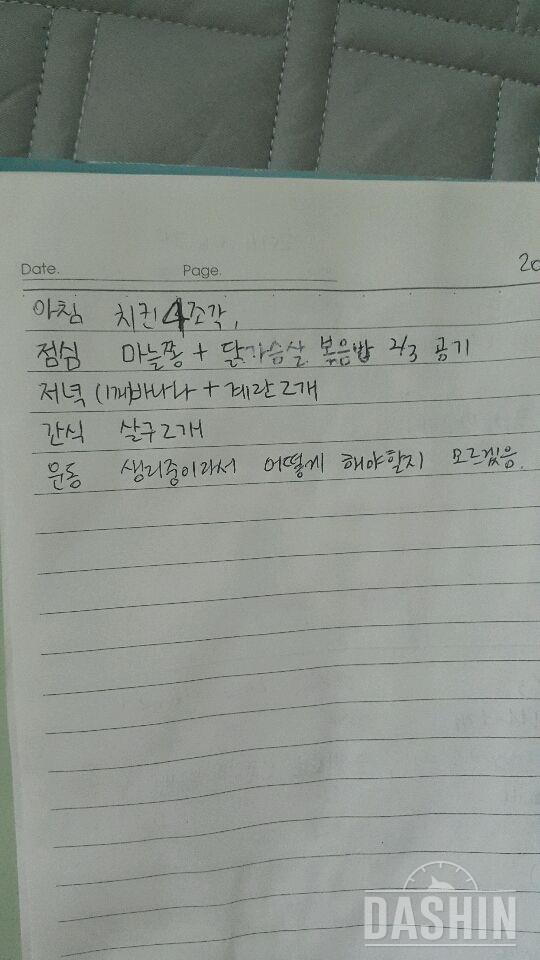 Date. Page. 20
아침 치킨 4조각,
점심 마늘쫑 + 닭가슴살 볶음밥 2/3 공기
저녁 (1개)바나나 + 계란 2개
간식 살구 2개
운동 생리중이라서 어떻게 해야할지 모르겠음.
DASHIN